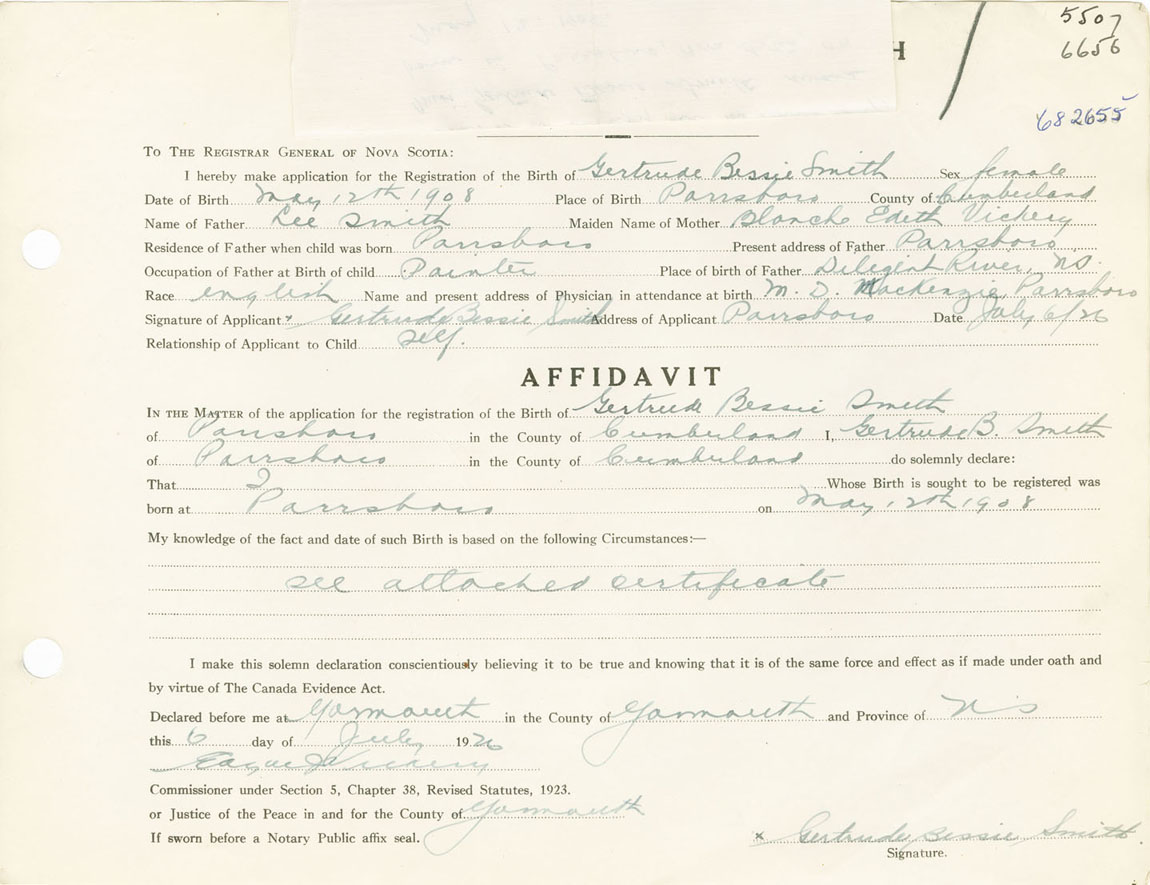 H
5507
6656
682655
TO THE REGISTRAR GENERAL OF NOVA SCOTIA:
I hereby make application for the Registration of the Birth of Gertrude Bessie Smith Sex female
Date of Birth May 12th 1908 Place of Birth Parrsboro County of Cumberland
Name of Father Lee Smith Maiden Name of Mother Blanche Edith Vickery
Residence of Father when child was born Parrsboro Present address of Father Parrsboro
Occupation of Father at Birth of child Painter Place of birth of Father Diligent River, NS.
Race english Name and present address of Physician in attendance at birth M. D. Mackenzie, Parrsboro
Signature of Applicant x Gertrude Bessie Smith Address of Applicant Parrsboro Date July 6/26
Relationship of Applicant to Child Self.
AFFIDAVIT
IN THE MATTER of the application for the registration of the Birth of Gertrude Bessie Smith
of Parrsboro in the County of Cumberland I, Gertrude B. Smith
of Parrsboro in the County of Cumberland do solemnly declare:
That I Whose Birth is sought to be registered was
born at Parrsboro on May 12th 1908
My knowledge of the fact and date of such Birth is based on the following Circumstances:—
see attached certificate
I make this solemn declaration conscientiously believing it to be true and knowing that it is of the same force and effect as if made under oath and
by virtue of The Canada Evidence Act.
Declared before me at Yarmouth in the County of Yarmouth and Province of NS
this 6 day of July 1926
Commissioner under Section 5, Chapter 38, Revised Statutes, 1923.
or Justice of the Peace in and for the County of Yarmouth
If sworn before a Notary Public affix seal.
x Gertrude Bessie Smith
Signature.